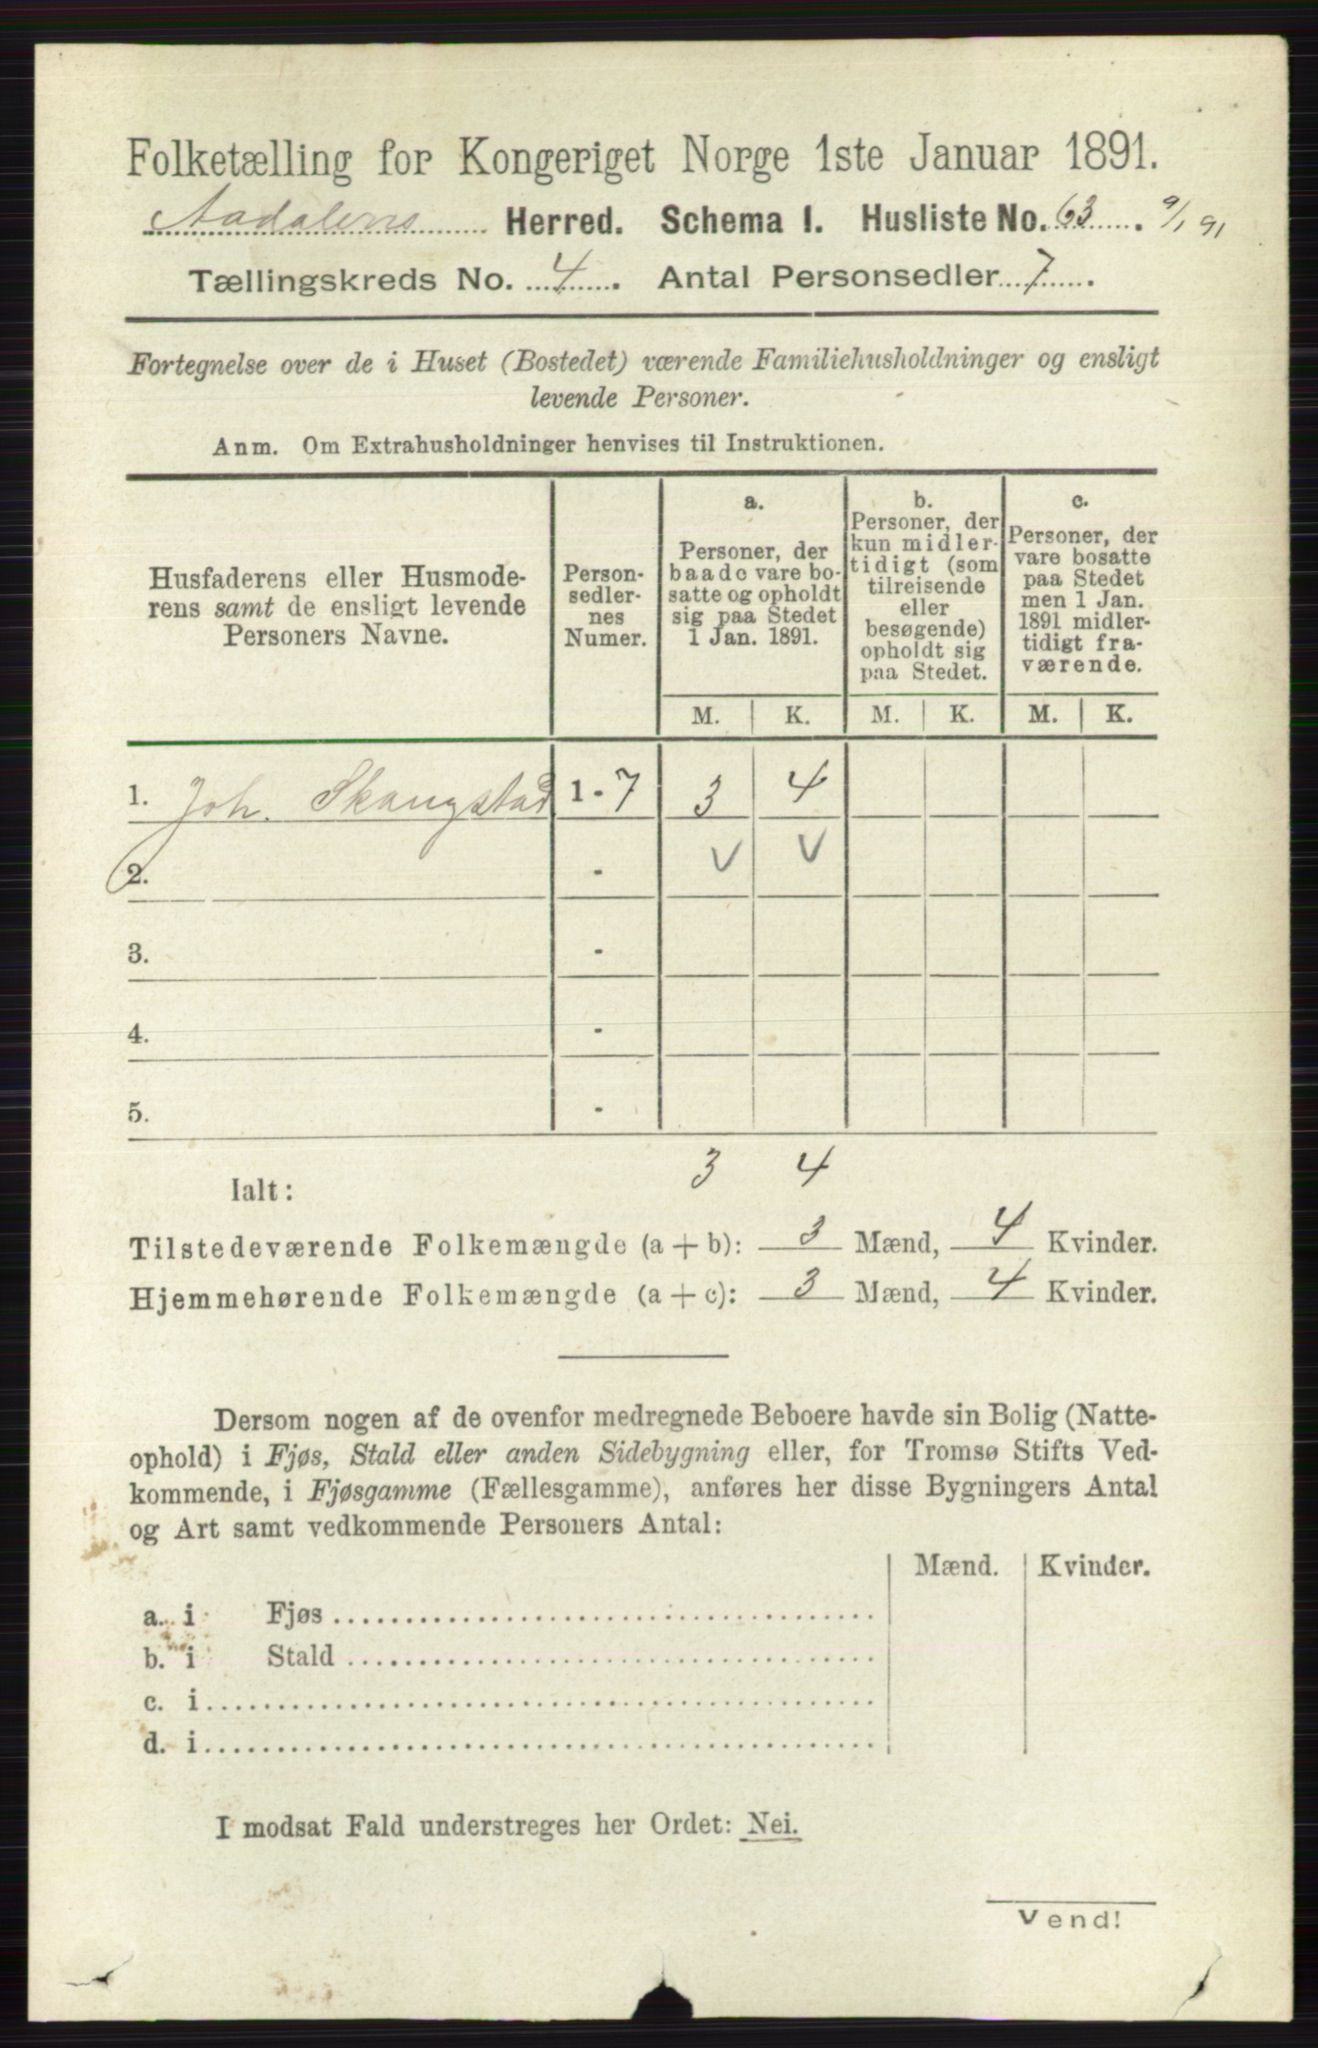 Folketælling for Kongeriget Norge 1ste Januar 1891.
Aadalens Herred. Schema I. Husliste No. 63. 9/1 91
Tællingskreds No. 4. Antal Personsedler 7.
Fortegnelse over de i Huset (Bostedet) værende Familiehusholdninger og ensligt
levende Personer.
Anm. Om Extrahusholdninger henvises til Instruktionen.
Husfaderens eller Husmode-
rens samt de ensligt levende
Personers Navne.
Person-
sedler-
nes
Numer.
a.
Personer, der
baade vare bo-
satte og opholdt
sig paa Stedet
1 Jan. 1891.
b.
Personer, der
kun midler-
tidigt (som
tilreisende
eller
besøgende)
opholdt sig
paa Stedet.
c.
Personer, der
vare bosatte
paa Stedet
men 1 Jan.
1891 midler-
tidigt fra-
værende.
M. K. M. K. M. K.
1. Joh. Skangstad 1 - 7 3 4
2. - V V
3. -
4. -
5. -
Ialt: 3 4
Tilstedeværende Folkemængde (a + b): 3 Mænd, 4 Kvinder.
Hjemmehørende Folkemængde (a + c): 3 Mænd, 4 Kvinder.
Dersom nogen af de ovenfor medregnede Beboere havde sin Bolig (Natte-
ophold) i Fjøs, Stald eller anden Sidebygning eller, for Tromsø Stifts Ved-
kommende, i Fjøsgamme (Fællesgamme), anføres her disse Bygningers Antal
og Art samt vedkommende Personers Antal:
Mænd. Kvinder.
a. i Fjøs
b. i Stald
c. i
d. i
I modsat Fald understreges her Ordet: Nei.
Vend!